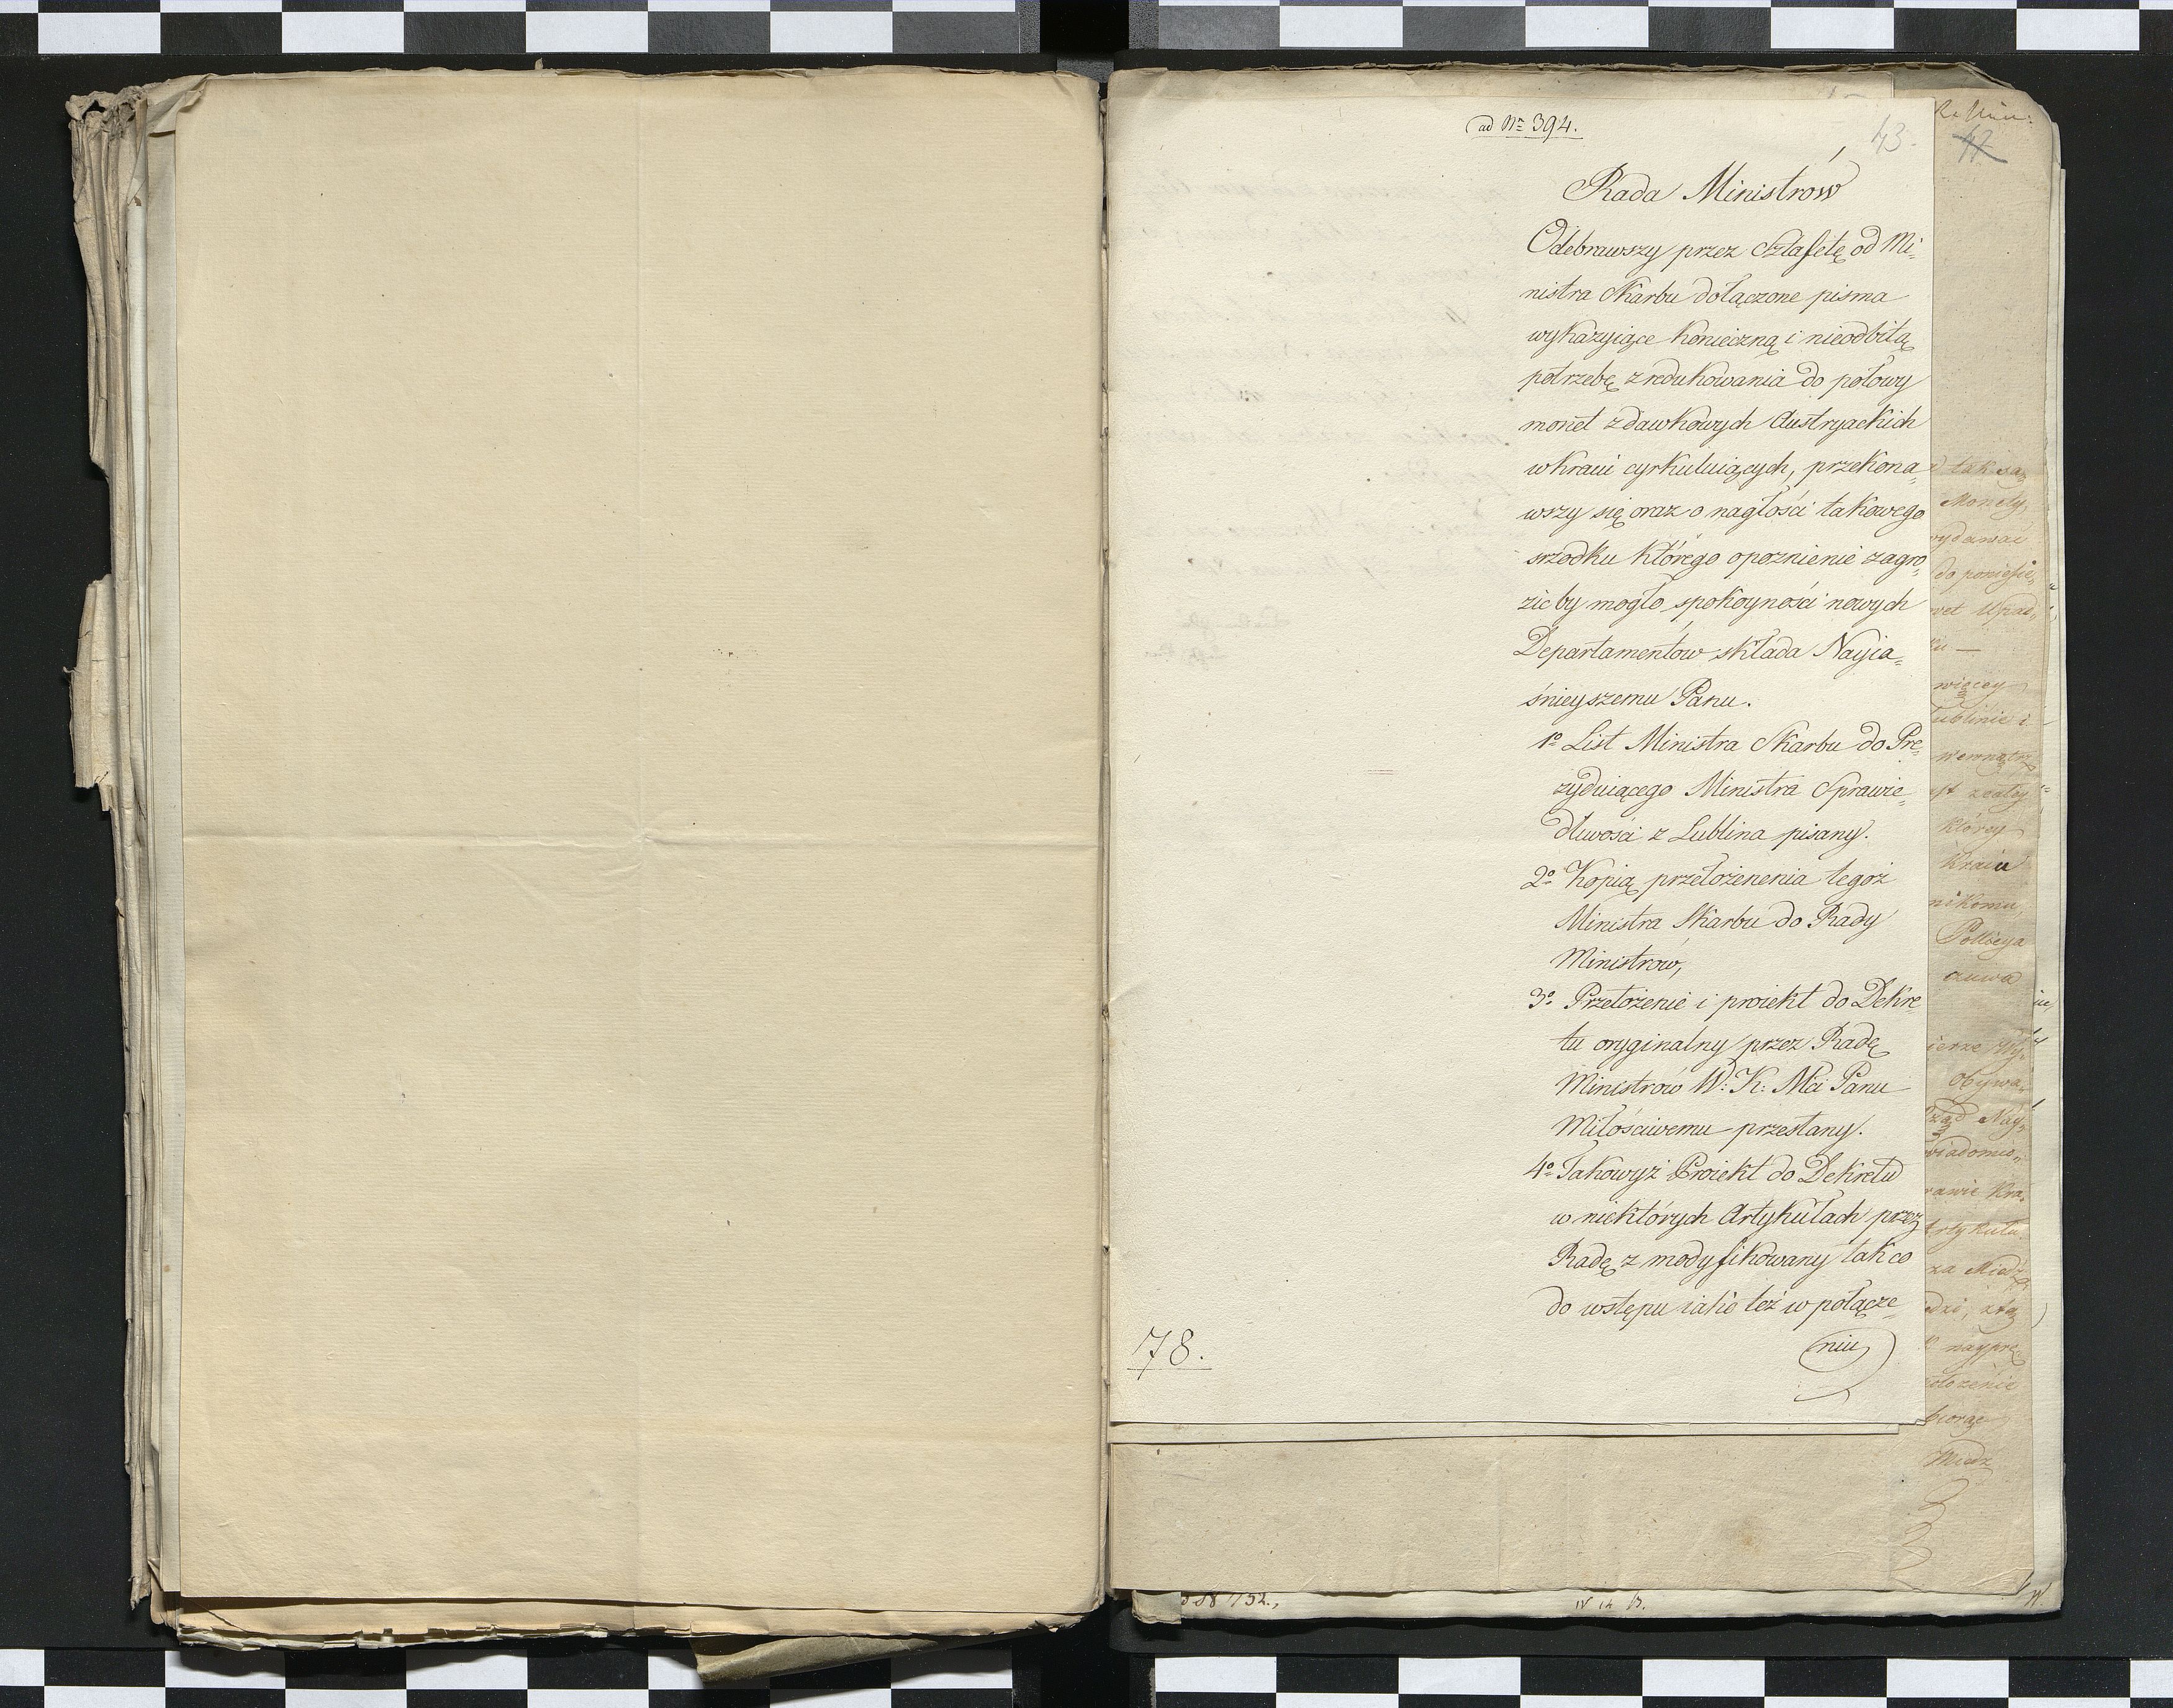 ad Nr 394.
43.
Rada Ministrów
Odebrawszy przez Sztafetę od Mi=
nistra Skarbu dołączone pisma
wykazyiące konieczną i nieodbitą
potrzebę zredukowania do połowy
monet zdawkowych Austryackich
w kraiu cyrkuluiących, przekona=
wszy się oraz o nagłości takowego
srzodku którego opoznienie zagro=
zic by mogło spokoyności nowych
Departamentow składa Nayia=
śnieyszemu Panu.
1o List Ministra Skarbu do Pre=
zyduiącego Ministra Sprawie=
dliwości z Lublina pisany.
2o Kopią przełożenenia tegoż
Ministra Skarbu do Rady
Ministrow,
3o Przełożenie i proiekt do Dekre=
tu oryginalny przez Radę
Ministrow W: K: Mci Panu
Miłościwemu przesłany.
4o Takowyż Proiekt do Dekretu
w niektórych Artykułach przez
Radę z modyfikowany tak co
do wstępu iako też w połącze=
niu
78.
42
Monety,
wydawać
więcey
Lublinie i
wewnątrz
którey
Kraiu
nikomu,
Policya
czuwa
Obywa=
Artykułu
za Miedz
Miedz